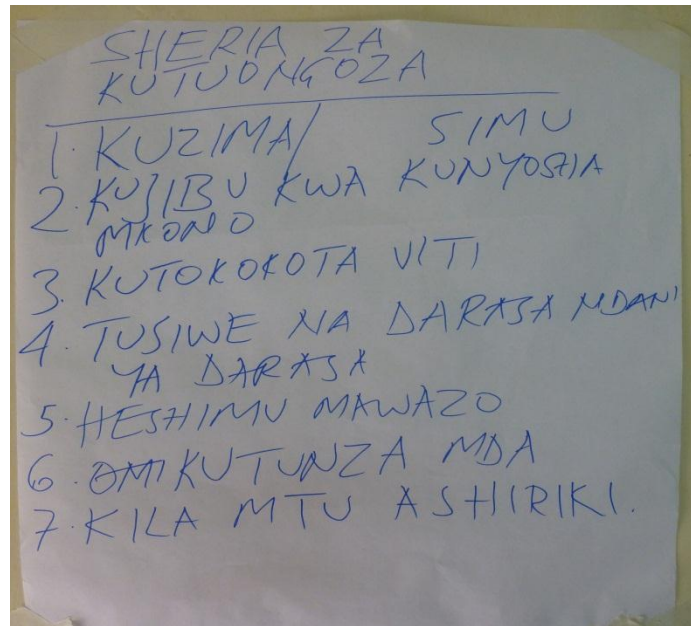 SHERIA ZA
KUTUONGOZA
1. KUZIMA/ SIMU
2. KUJIBU KWA KUNYOSHA
MKONO
3. KUTOKOKOTA VITI
4. TUSIWE NA DARASA MDANI
YA DARASA
5. HESHIMU MAWAZO
6. KUTUNZA MDA
7. KILA MTU ASHIRIKI.